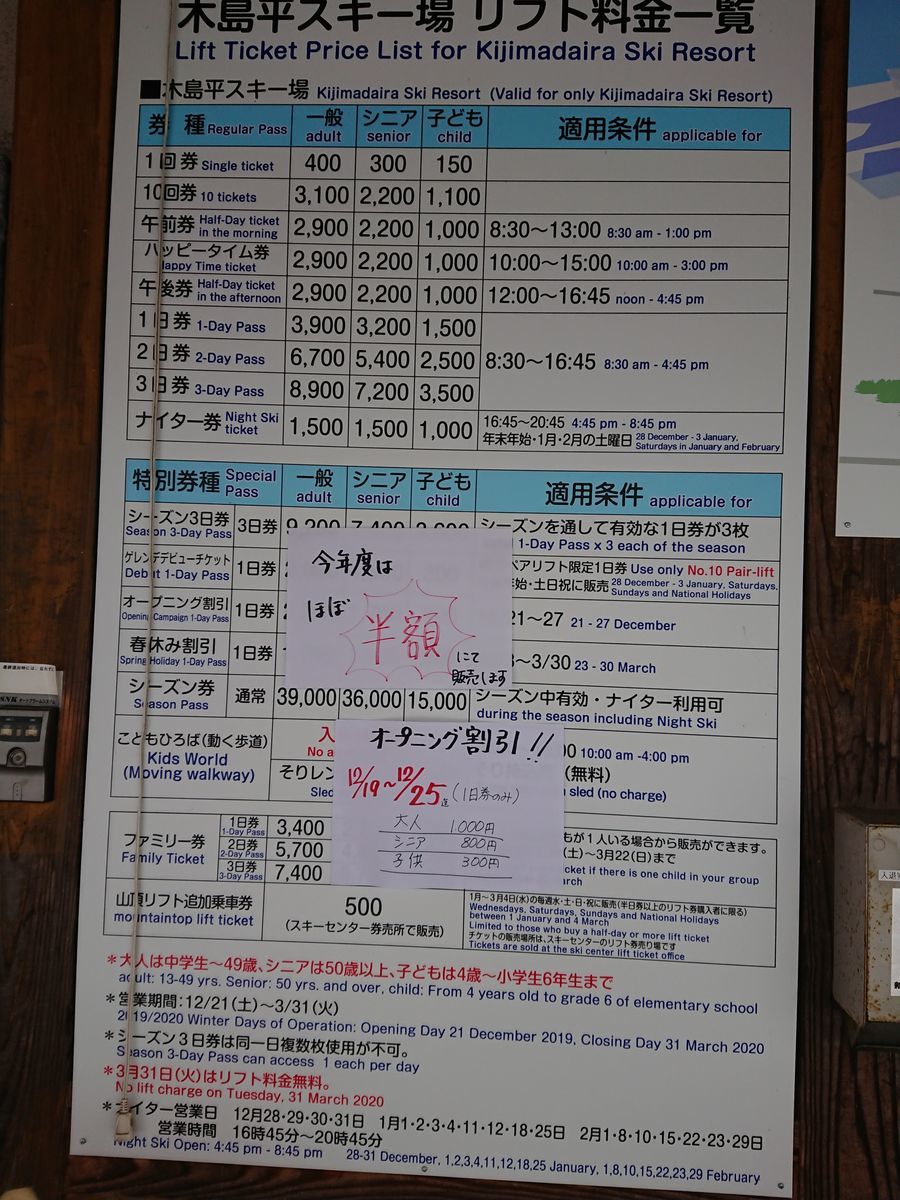 木島平スキー場 リフト料金一覧
Lift Ticket Price List for Kijimadaira Ski Resort
■木島平スキー場 Kijimadaira Ski Resort (Valid for only Kijimadaira Ski Resort)
券種 Regular Pass 一般 adult シニア senior 子ども child 適用条件 applicable for
1回券 Single ticket 400 300 150
10回券 10 tickets 3,100 2,200 1,100
午前券 Half-Day ticket in the morning 2,900 2,200 1,000 8:30〜13:00 8:30 am - 1:00 pm
ハッピータイム券 Happy Time ticket 2,900 2,200 1,000 10:00〜15:00 10:00 am - 3:00 pm
午後券 Half-Day ticket in the afternoon 2,900 2,200 1,000 12:00〜16:45 noon - 4:45 pm
1日券 1-Day Pass 3,900 3,200 1,500
2日券 2-Day Pass 6,700 5,400 2,500 8:30〜16:45 8:30 am - 4:45 pm
3日券 3-Day Pass 8,900 7,200 3,500
ナイター券 Night Ski ticket 1,500 1,500 1,000 16:45〜20:45 4:45 pm - 8:45 pm
年末年始・1月・2月の土曜日 28 December - 3 January, Saturdays in January and February
特別券種 Special Pass 一般 adult シニア senior 子ども child 適用条件 applicable for
シーズン3日券 Season 3-Day Pass 3日券 9,200 シーズンを通して有効な1日券が3枚
1-Day Pass x 3 each of the season
ゲレンデデビューチケット Debut 1-Day Pass 1日券 ペアリフト限定1日券 Use only No.10 Pair-lift
年始・土日祝に販売 28 December - 3 January, Saturdays, Sundays and National Holidays
オープニング割引 Opening Campaign 1-Day Pass 1日券 21〜27 21 - 27 December
春休み割引 Spring Holiday 1-Day Pass 1日券 〜3/30 23 - 30 March
シーズン券 Season Pass 通常 39,000 36,000 15,000 シーズン中有効・ナイター利用可
during the season including Night Ski
今年度は
ほぼ
半額
にて
販売します
こどもひろば(動く歩道)
Kids World
(Moving walkway)
入
No a
10:00 am -4:00 pm
そりレン
Sled
(無料)
sled (no charge)
オープニング割引!!
12/19〜12/25迄(1日券のみ)
大人 1,000円
シニア 800円
子供 300円
ファミリー券
Family Ticket
1日券 1-Day Pass 3,400
2日券 2-Day Pass 5,700
3日券 3-Day Pass 7,400
もが1人いる場合から販売ができます。
(土)〜3月22(日)まで
ticket if there is one child in your group
arch
山頂リフト追加乗車券
mountaintop lift ticket
500
(スキーセンター券売所で販売)
1月〜3月4日(水)の毎週水・土・日・祝に販売(半日券以上のリフト券購入者に限る)
Wednesdays, Saturdays, Sundays and National Holidays
between 1 January and 4 March
Limited to those who buy a half-day or more lift ticket
チケットの販売場所は、スキーセンターのリフト券売り場です
Tickets are sold at the ski center lift ticket office
*大人は中学生〜49歳、シニアは50歳以上、子どもは4歳〜小学生6年生まで
adult: 13-49 yrs. Senior: 50 yrs. and over, child: From 4 years old to grade 6 of elementary school
*営業期間:12/21(土)〜3/31(火)
2019/2020 Winter Days of Operation: Opening Day 21 December 2019, Closing Day 31 March 2020
*シーズン3日券は同一日複数枚使用が不可。
Season 3-Day Pass can access 1 each per day
*3月31日(火)はリフト料金無料。
No lift charge on Tuesday, 31 March 2020
*ナイター営業日 12月28・29・30・31日 1月1・2・3・4・11・12・18・25日 2月1・8・10・15・22・23・29日
営業時間 16時45分〜20時45分
Night Ski Open: 4:45 pm - 8:45 pm 28-31 December, 1,2,3,4,11,12,18,25 January, 1,8,10,15,22,23,29 February